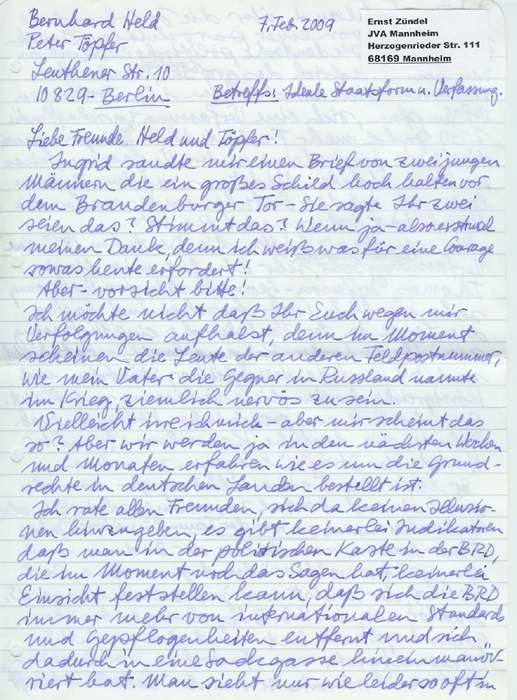 Bernhard Held
7. Feb. 2009
Peter Töpfer
Leuthener Str. 10
10829 - Berlin
Ernst Zündel
JVA Mannheim
Herzogenrieder Str. 111
68169 Mannheim
Betreffs: Ideale Staatsform u. Verfassung.
Liebe Freunde Held und Töpfer!
Ingrid sandte mir einen Brief von zwei jungen
Männern die ein großes Schild hoch halten vor
dem Brandenburger Tor - Sie sagte Ihr zwei
seien das? Stimmt das? Wenn ja - also erst mal
meinen Dank, denn ich weiß was für eine Courage
sowas heute erfordert!
Aber - vorsicht bitte!
Ich möchte nicht daß Ihr Euch wegen mir
Verfolgungen aufhalst, denn im Moment
scheinen die Leute der anderen Feldpostnummer,
wie mein Vater die Gegner in Russland nannte
im Krieg, ziemlich nervös zu sein.
Vielleicht irre ich mich - aber mir scheint das
so? Aber wir werden ja in den nächsten Wochen
und Monaten erfahren wie es um die Grund-
rechte in deutschen Landen bestellt ist.
Ich rate allen Freunden, sich da keinen Illusio-
nen hinzugeben, es gibt keinerlei Indikatoren
daß man in der politischen Kaste in der BRD,
die im Moment noch das Sagen hat, keinerlei
Einsicht feststellen kann, daß sich die BRD
immer mehr von internationalen Standards
und Gepflogenheiten entfernt und sich
dadurch in eine Sackgasse hinein manöv-
riert hat. Man sieht nur wie leider so oft in